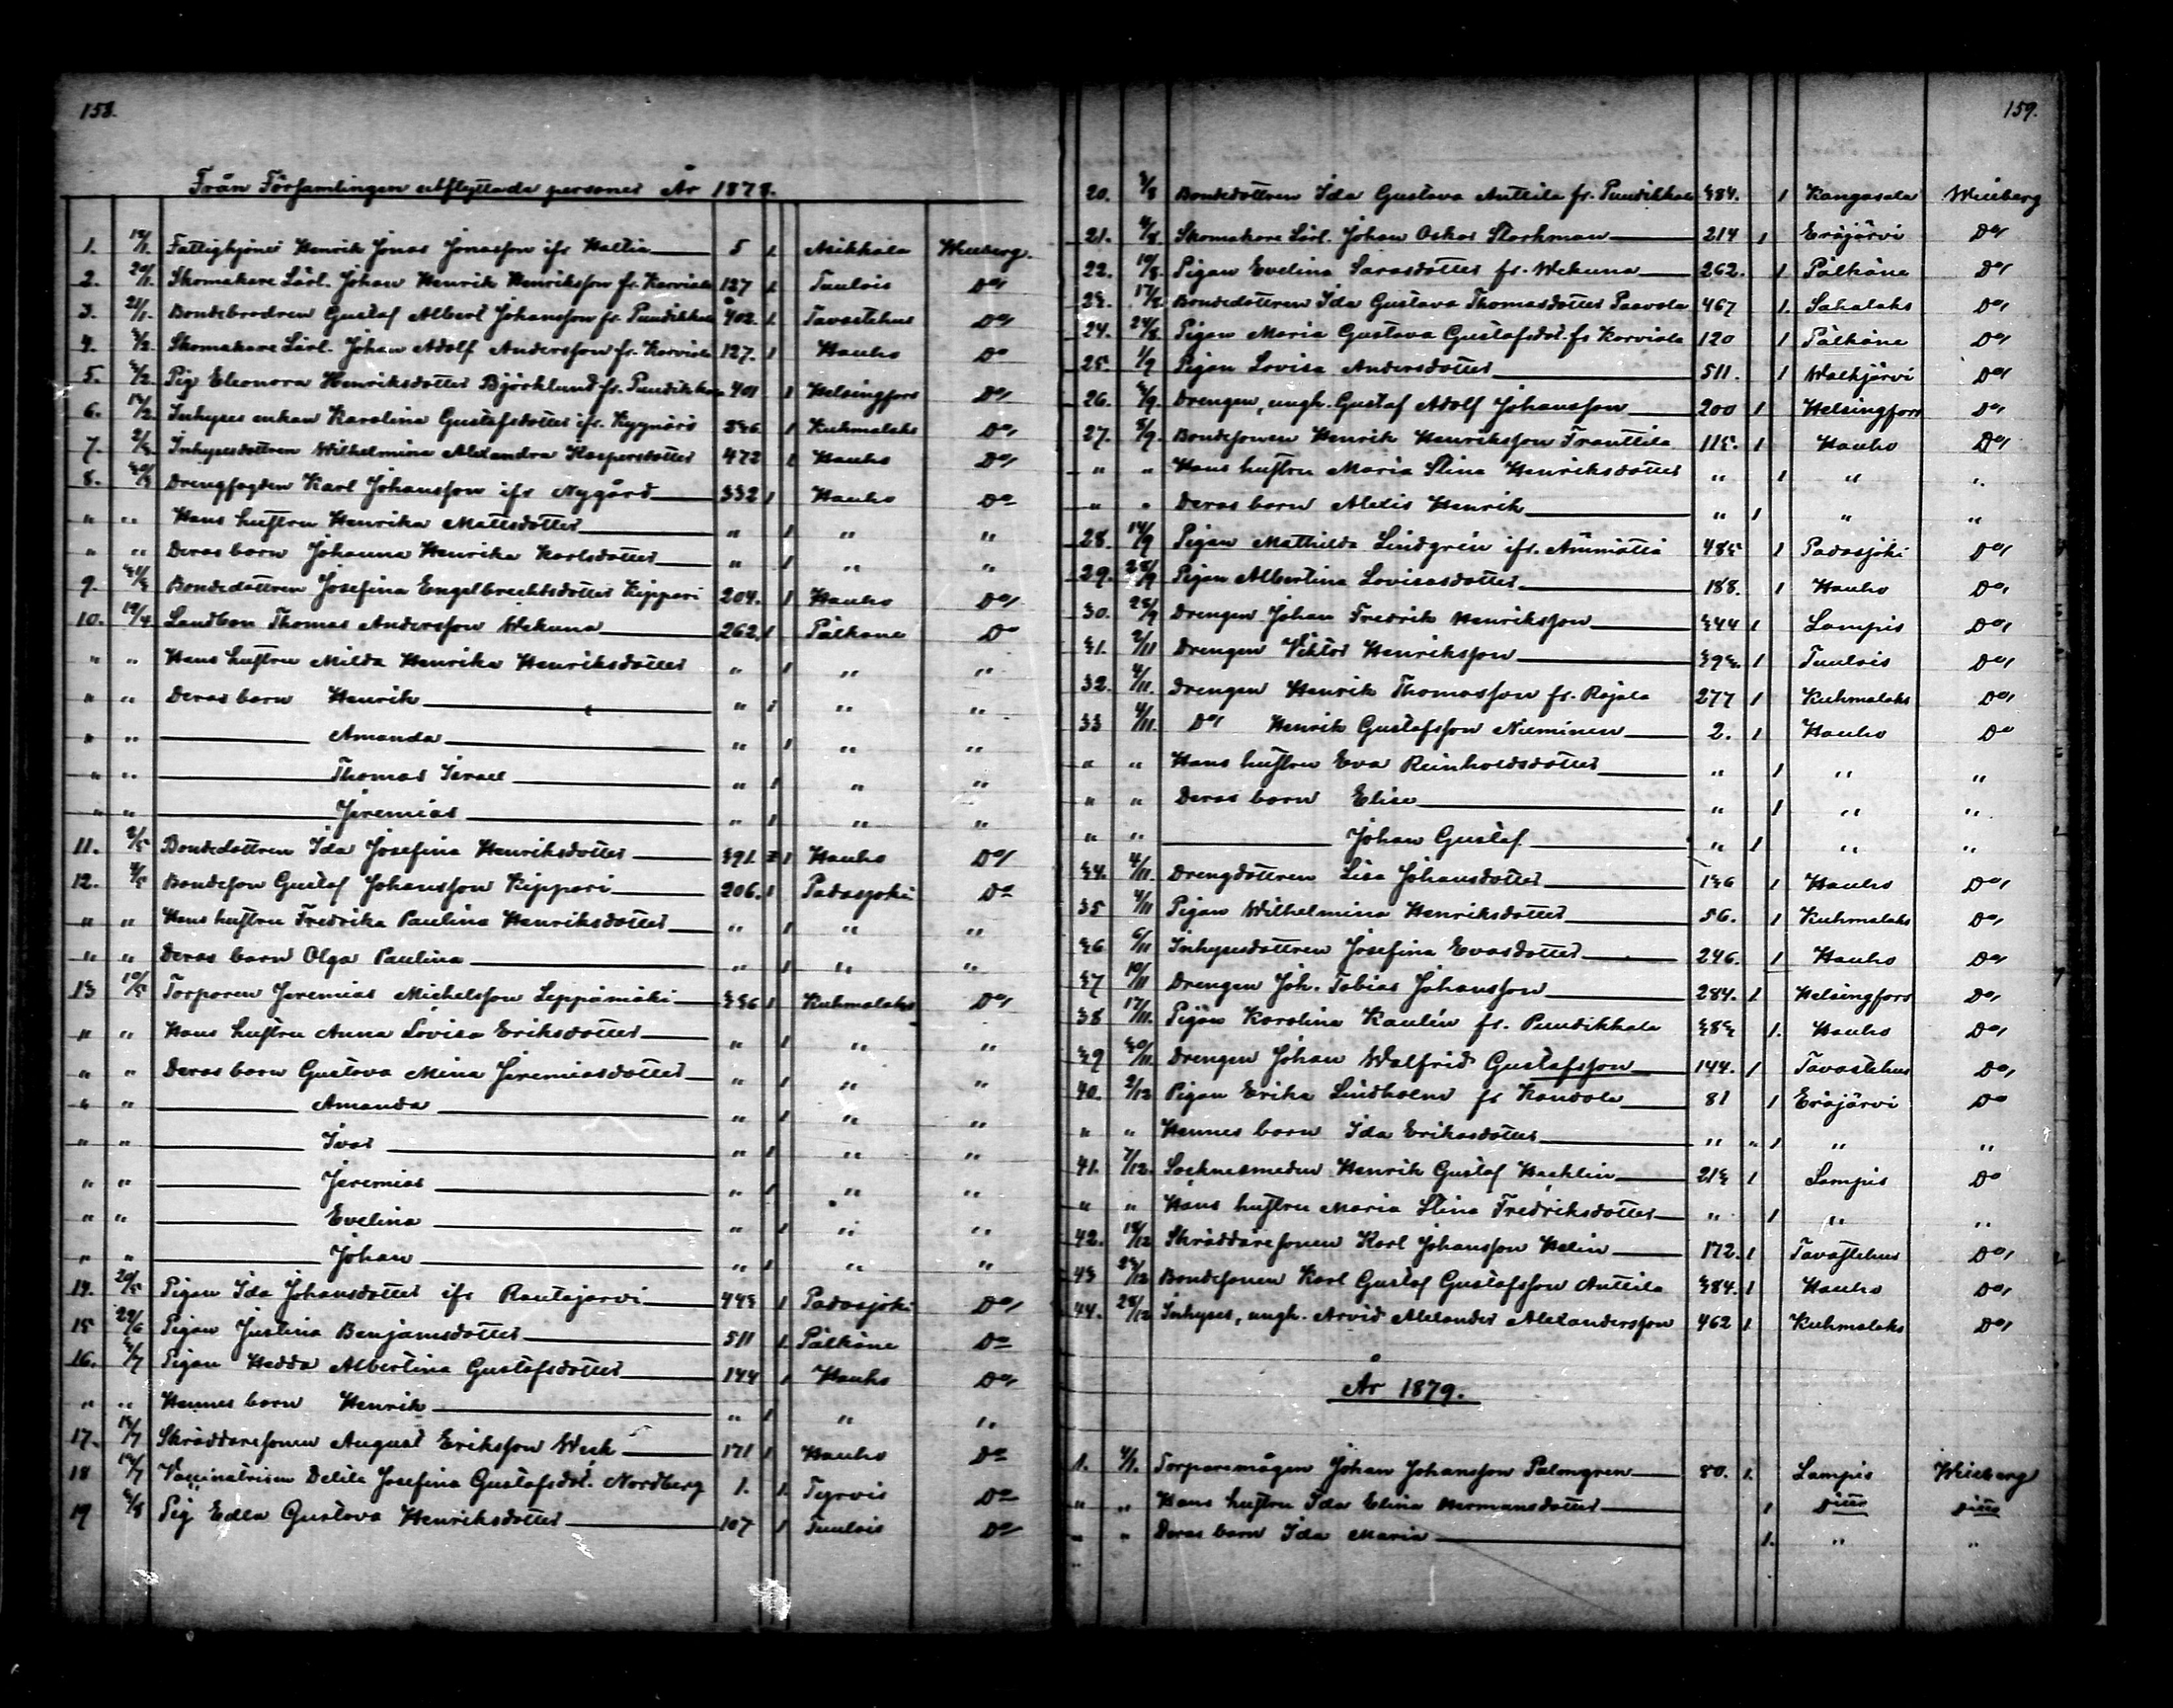 158.
Från Församlingen utflyttade personer År 1878.
1. Fattighjonet Henrik Jonas Jonasson ifr Hattia 5 1 Asikkala Wieberg.
2. 20/1. Skomakare Lärl. Johan Henrik Henriksson fr. Korviala 127 1 Tuulois Do,
3. 21/1. Bondebrodren Gustaf Albert Johansson fr. Puudikkala 402. 1. Tavastehus Do,
4. Skomakare Lärl. Johan Adolf Andersson fr. Korviala 127. 1 Hauho Do
5. Pig Eleonora Henriksdotter Björklund fr. Puudikkala 401 1 Helsingfors Do,
6. Inhyses enkan Karolina Gustafsdotter ifr. Kyynärö 1 Kuhmalaks Do,
7. Inhysesdottren Wilhelmina Alexandra Kaspersdotter 472 1 Hauho Do,
8. Drengfogden Karl Johansson ifr Nygård 332 1 Hauho Do
" " Hans hustru Henrika Mattsdotter " 1 " "
" " Deras barn Johanna Henrika Karlsdotter " 1 " "
9. Bondedottren Josefina Engelbrechtsdotter Kippari 204. 1 Hauho Do,
10. 19/4 Landbon Thomas Andersson Wekuna 262. 1 Pälkäne Do
" " Hans hustru Milda Henrika Henriksdotter " 1 " "
" " Deras barn Henrik " 1 " "
" " Amanda " 1 " "
" " Thomas Israel " 1 " "
" " Jeremias " 1 " "
11. Bondedottren Ida Josefina Henriksdotter 391 1 Hauho Do,
12. Bondeson Gustaf Johansson Kippari 206. 1 Padasjoki Do
" " Hans hustru Fredrika Paulina Henriksdotter " 1 " "
" " Deras barn Olga Paulina " 1 " "
13 10/5 Torparen Jeremias Michelsson Leppämäki 336 1 Kuhmalaks Do,
" " Hans hustru Anna Lovisa Eriksdotter " 1 " "
" " Deras barn Gustava Mina Jeremiasdotter " 1 " "
" " Amanda " 1 " "
" " Ivar " 1 " "
" " Jeremias " 1 " "
" " Evelina " 1 " "
" " Johan " 1 " "
14. 20/5 Pigan Ida Johansdotter ifr Rautajärvi 443 1 Padasjoki Do,
15 29/6 Pigan Justina Benjamsdotter 511 1 Pälkäne Do
16. Pigan Hedda Albertina Gustafsdotter 144 1 Hauho Do,
" " Hennes barn Henrik " 1 " "
17. Skräddaresonen August Eriksson Wesk 171 1 Hauho Do
18 Vaccinatrisen Delila Josefina Gustafsdot. Nordberg 1. 1. Tyrvis Do
19 Pig Edla Gustava Henriksdotter 107 1 Tuulois Do
159.
20. Bondedottren Ida Gustava Anttila fr. Puudikkala 384. 1 Kangasala Wieberg
21. Skomakare Lärl. Johan Oskar Starkman 214 1 Eräjärvi Do,
22. 10/8. Pigan Evelina Sarasdotter fr. Wekuna 262. 1 Pälkäne Do,
23. 17/8. Bondedottren Ida Gustava Thomasdotter Paavola 467 1. Sahalaks Do,
24. 24/8. Pigan Maria Gustava Gustafsdot. fr Korviala 120 1 Pälkäne Do,
25. 1/9 Pigan Lovisa Andersdotter 511. 1 Walkjärvi Do,
26. Drengen, ungk. Gustaf Adolf Johansson 200 1 Helsingfors Do,
27. Bondesonen Henrik Henriksson Franttila 115. 1 Hauho Do,
" " Hans hustru Maria Stina Henriksdotter " 1 " "
" " Deras barn Alexis Henrik " 1 " "
28. 14/9 Pigan Mathilda Lindgrén ifr. Ämmättä 485 1 Padasjoki Do,
29. 28/9 Pigan Albertina Lovisasdotter 188. 1 Hauho Do,
30. 28/9 Drengen Johan Fredrik Henriksson 344 1 Lampis Do,
31. 2/11 Drengen Viktor Henriksson 393. 1 Tuulois Do,
32. 4/11. Drengen Henrik Thomasson fr. Rajala 277 1 Kuhmalaks Do,
33 4/11. Do, Henrik Gustafsson Nieminen 2. 1 Hauho Do
" " Hans hustru Eva Reinholdsdotter " 1 " "
" " Deras barn Elise " 1 " "
" " Johan Gustaf " 1 " "
34. 4/11. Drengdottren Lisa Johansdotter 136 1 Hauho Do,
35 4/11 Pigan Wilhelmina Henriksdotter 56. 1 Kuhmalaks Do,
36 6/11 Inhysesdottren Josefina Evasdotter 246. 1 Hauho Do,
37 10/11 Drengen Joh. Tobias Johansson 284. 1 Helsingfors Do,
38 17/11. Pigan Karolina Kaulin fr. Puudikkala 383 1. Hauho Do,
39 30/11. Drengen Johan Walfrid Gustafsson 144. 1 Tavastehus Do,
40. 2/12 Pigan Erika Lindholm fr Kandola 81 1 Eräjärvi Do
" " Hennes barn Ida Erikasdotter " " 1 " "
41. 7/12. Socknesmeden Henrik Gustaf Hacklin 213 1 Lampis Do
" " Hans hustru Maria Stina Fredriksdotter " 1 " "
42. Skräddaresonen Karl Johansson Helin 172. 1 Tavastehus Do,
43 Bondesonen Karl Gustaf Gustafsson Anttila 384. 1 Hauho Do,
44. 28/12 Inhyses, ungk. Arvid Alexander Alexandersson 462 1 Kuhmalaks Do,
År 1879.
1. 4/1. Torparemågen Johan Johansson Palongren 80. 1. Lampis Wieberg
" " Hans hustru Ida Elina Hermansdotter 1 Ditto Ditto
" " Deras barn Ida Maria 1. " "